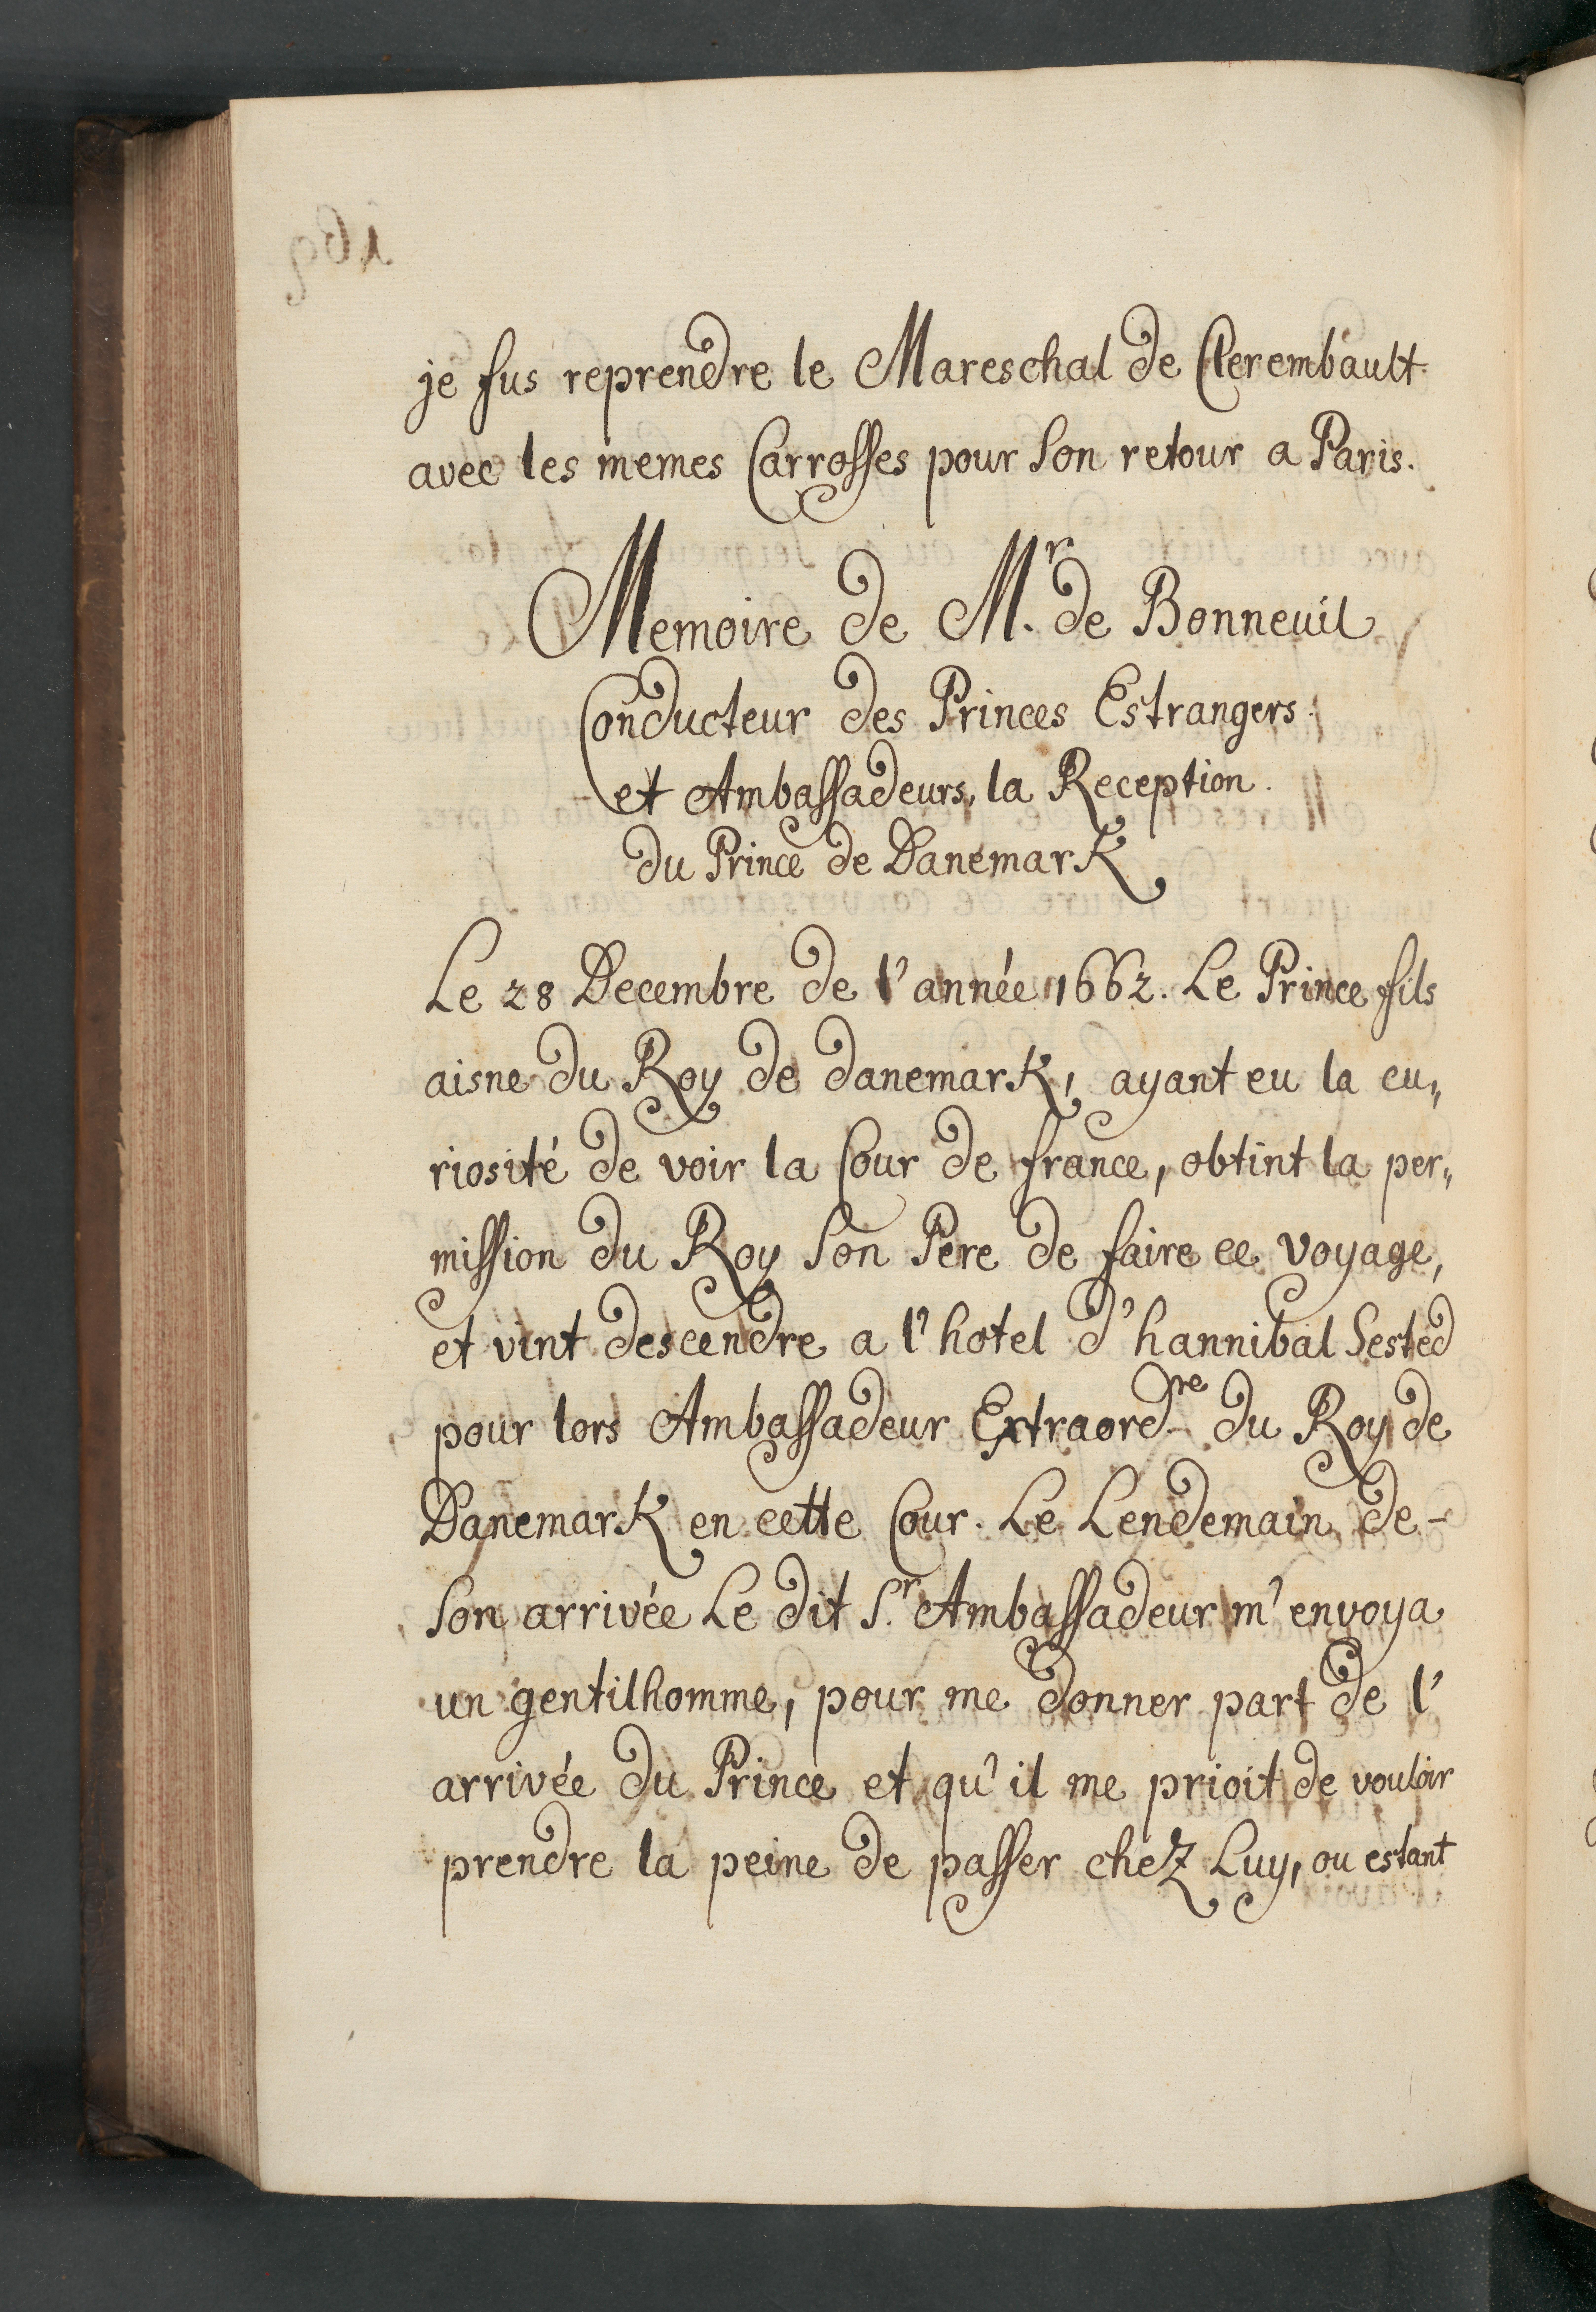 je fus reprendre le Mareschal de Clerembault
avec les memes Carrosses pour son retour a Paris.
Memoire de M.r de Bonneuil
Conducteur des Princes Estrangers
et Ambassadeurs, la Reception
du Prince de Danemark
Le 28 Decembre de l'année 1662. Le Prince fils
aisne du Roy de danemark, ayant eu la cu„
riosité de voir la Cour de france, obtint la per„
mission du Roy son Pere de faire ce voyage,
et vint descendre a l'hotel d'hannibal Sested
pour lors Ambassadeur Extraord.re du Roy de
Danemark en cette Cour. Le Lendemain de-
son arrivée Le dit S.r Ambassadeur m'envoya
un gentilhomme, pour me donner part de l'
arrivée du Prince et qu'il me prioit de vouloir
prendre la peine de passer chez Luy, ou estant